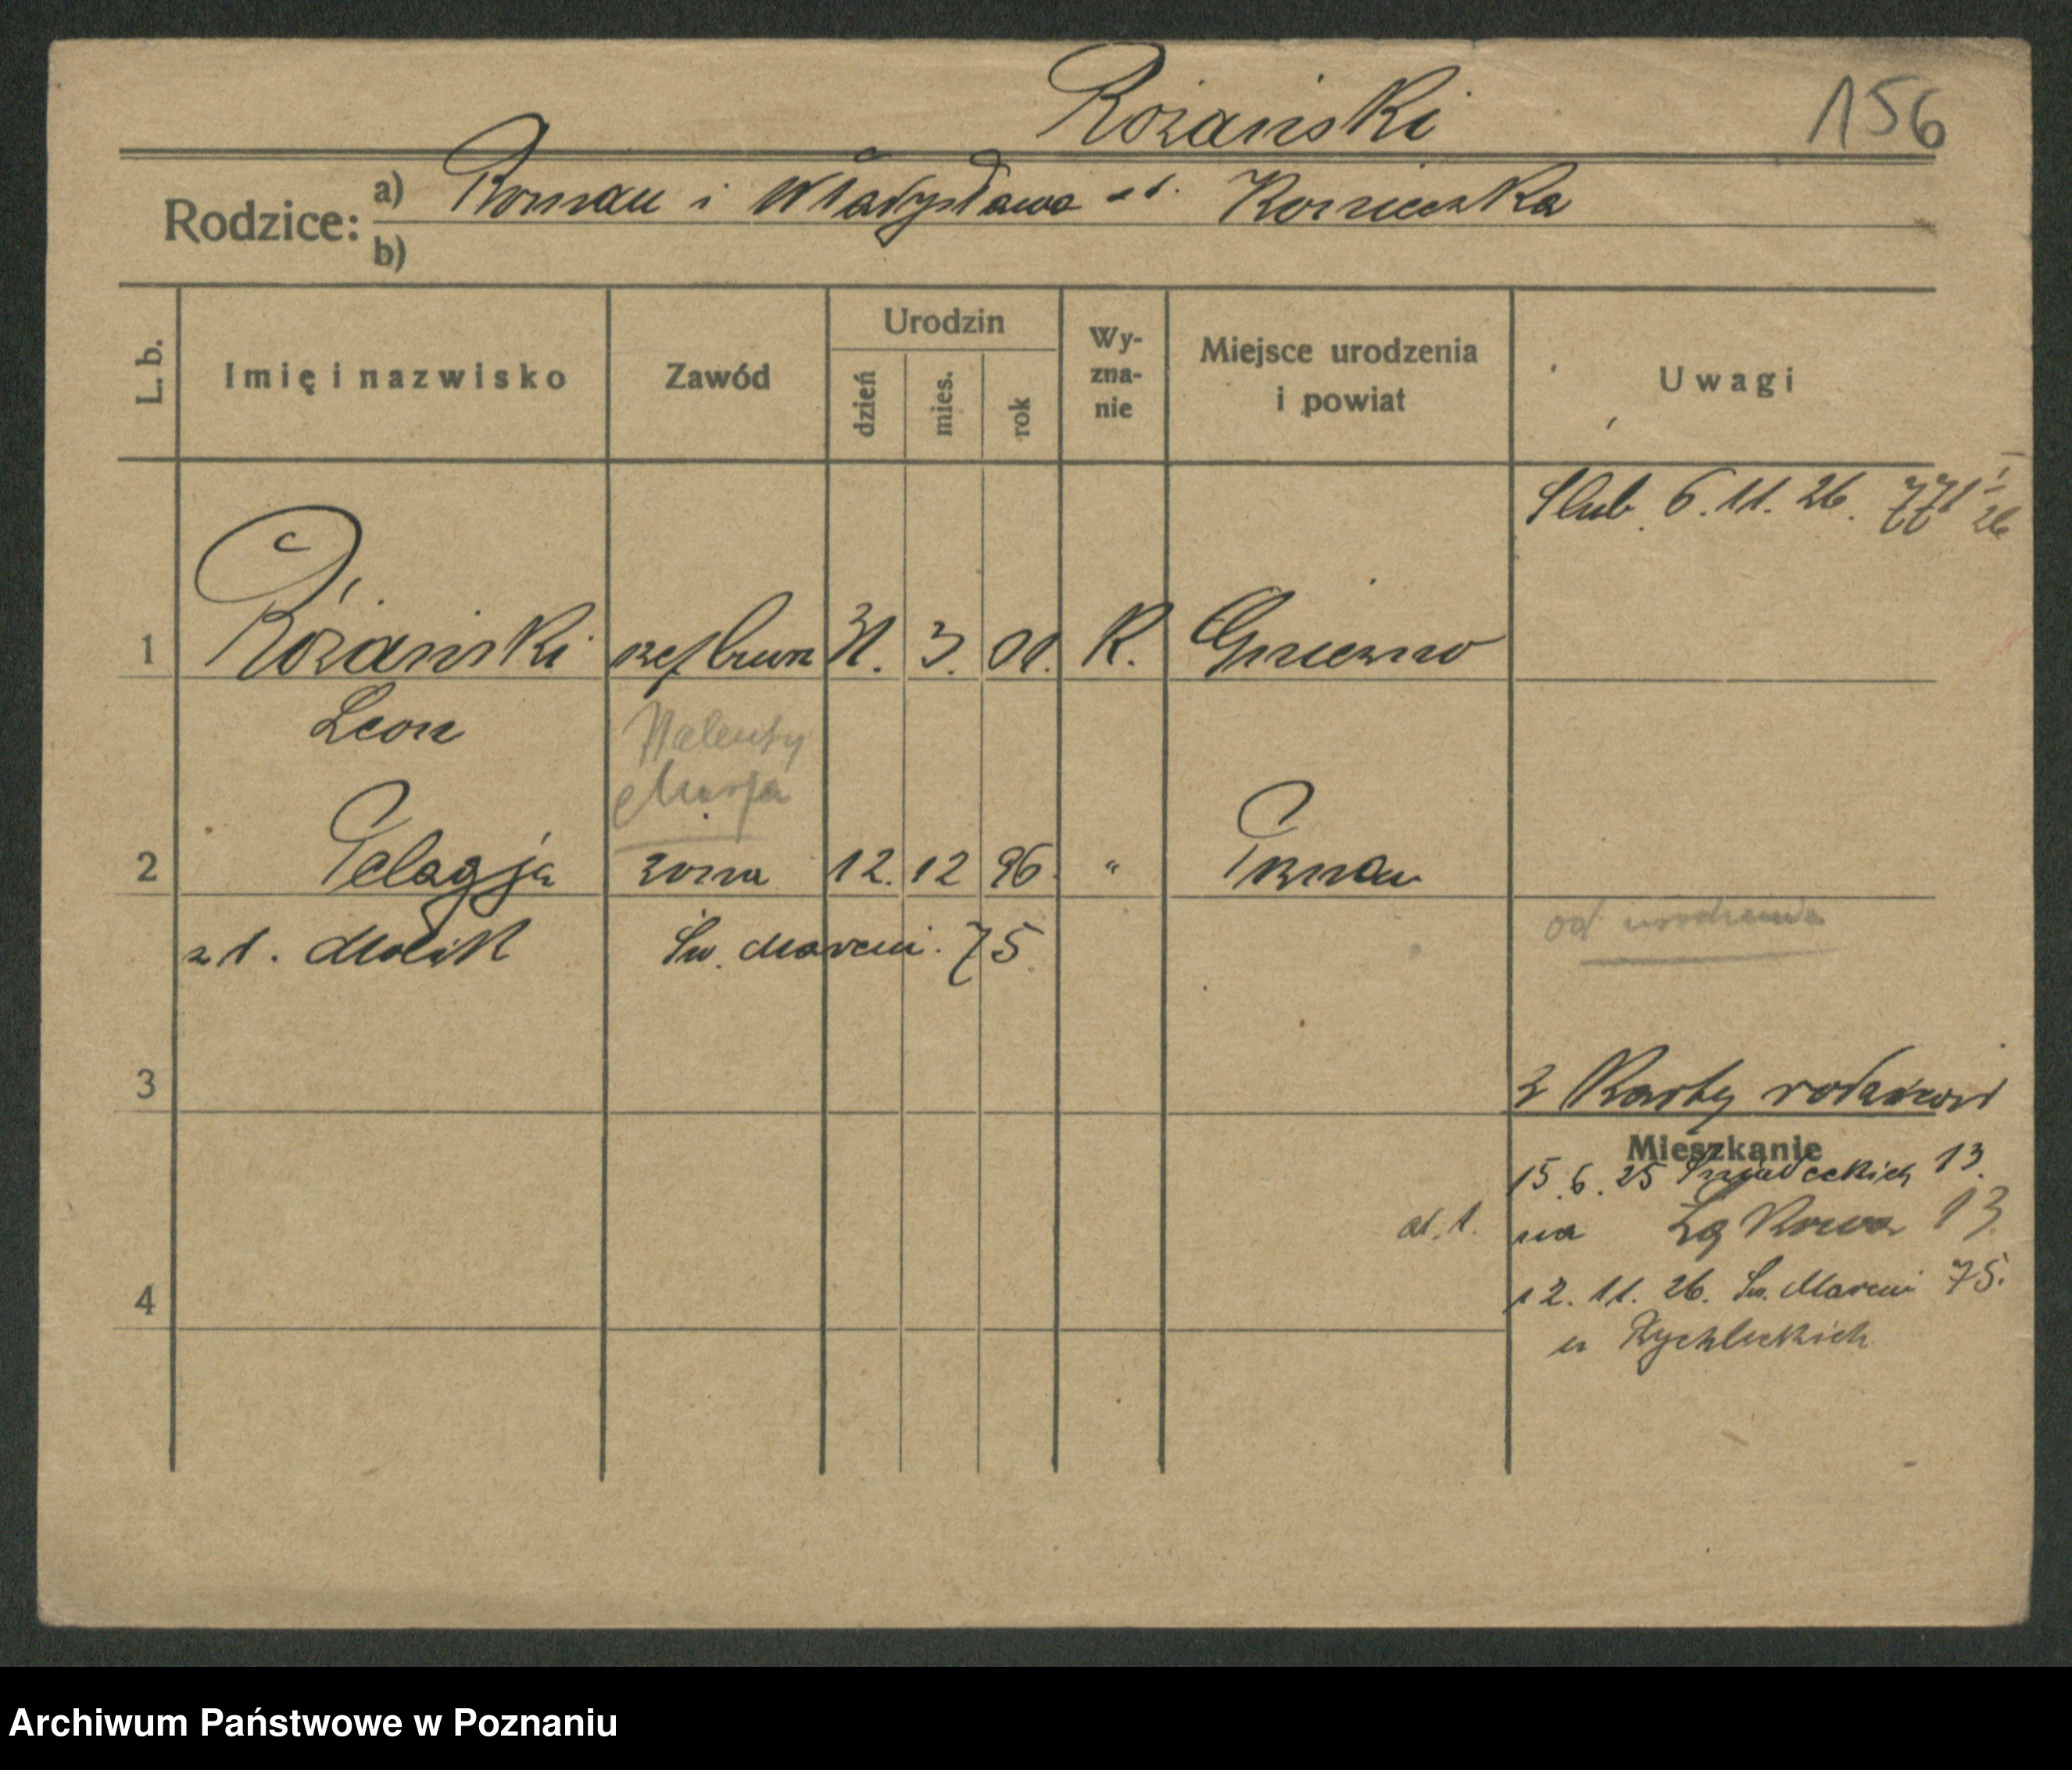 Różański 156
Rodzice: a) Roman i Władysława zd. Konieczka
b)
L. b. Imię i nazwisko Zawód Urodzin dzień mies. rok Wy-zna-nie Miejsce urodzenia i powiat Uwagi
Slub. 6.11.26. 771 I 26
1 Różański szef biura 31. 3. 01. K. Gniezno
Leon Walenty
Marja
2 Pelagja żona 12. 12 96. " Poznań
zd. Molik Św. Marcin. 75 od urodzenia
3 z Karty rodziców
Mieszkanie
15.6.25 Śniadeckich 13.
ad. 1. na Łąkowa 13.
4 12. 11. 26. Św. Marcin 75.
u Rychlickich
Archiwum Państwowe w Poznaniu